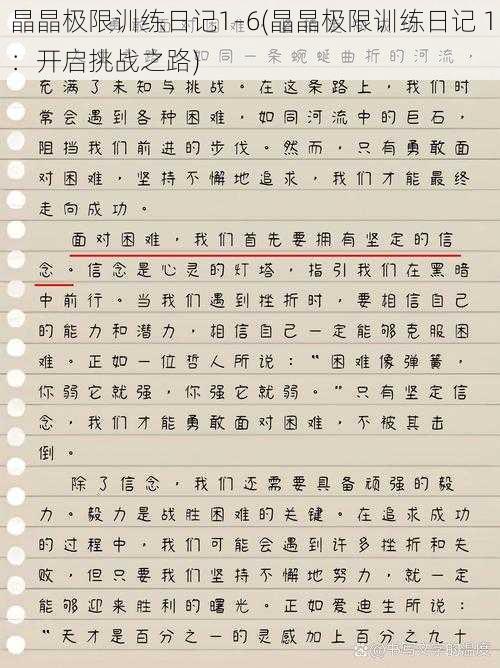 晶晶极限训练日记1-6(晶晶极限训练日记 1
：开启挑战之路)
如同一条蜿蜒曲折的河流，
充满了未知与挑战。在这条路上，我们时
常会遇到各种困难，如同河流中的巨石，
阻挡我们前进的步伐。然而，只有勇敢面
对困难，坚持不懈地追求，我们才能最终
走向成功。
面对困难，我们首先要拥有坚定的信
念。信念是心灵的灯塔，指引我们在黑暗
中前行。当我们遇到挫折时，要相信自己
的能力和潜力，相信自己一定能够克服困
难。正如一位哲人所说：“困难像弹簧，
你弱它就强，你强它就弱。”只有坚定信
念，我们才能勇敢面对困难，不被其击
倒。
除了信念，我们还需要具备顽强的毅
力。毅力是战胜困难的关键。在追求成功
的过程中，我们可能会遇到许多挫折和失
败，但只要我们坚持不懈地努力，就一定
能够迎来胜利的曙光。正如爱迪生所说：
“天才是百分之一的灵感加上百分之九十
知乎 @书写文字的温度